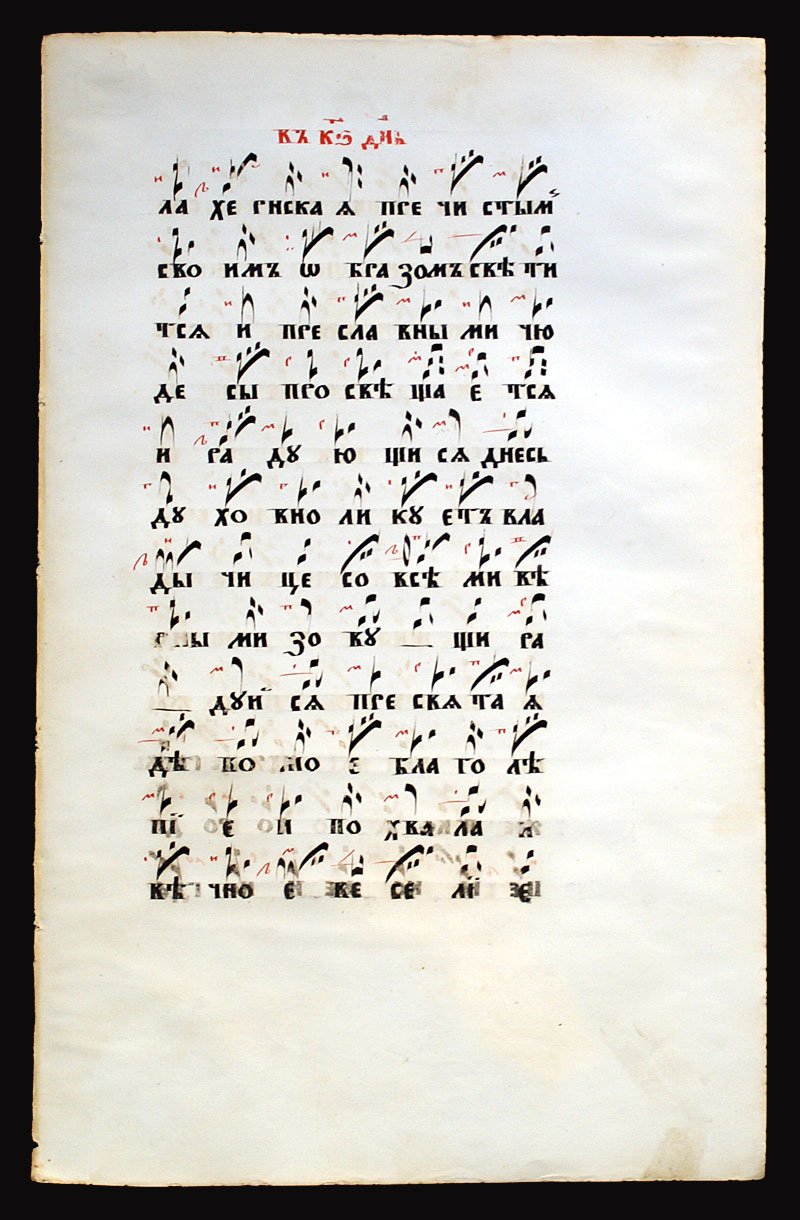 ВЪ КѲ҃ ДНЬ
ЛА ХЕ РНСКА Ѧ ПРЕ ЧИ СТЫМ
СВО ИМЪ Ѡ БРА ЗОМЪ СВѢ ТИ
ТСѦ И ПРЕ СЛА ВНЫ МИ ЧЮ
ДЕ СЫ ПРО СВѢ ЩА Е ТСѦ
И РА ДУ Ю ЩИ СѦ ДНЕСЬ
ДУ ХО ВНО ЛИ КУ ЕТЪ ВЛА
ДЫ ЧИ ЦЕ СО ВСѢ МИ ВѢ
РНЫ МИ ЗО ВУ ЩИ РА
ДУЙ СѦ ПРЕ СВѦ ТА Ѧ
ДѢ ВО МО Е БЛА ГО ЛѢ
ПІ Е И ПО ХВА ЛА И
ВѢ ЧНО Е ВЕ СЕ ЛІ Е